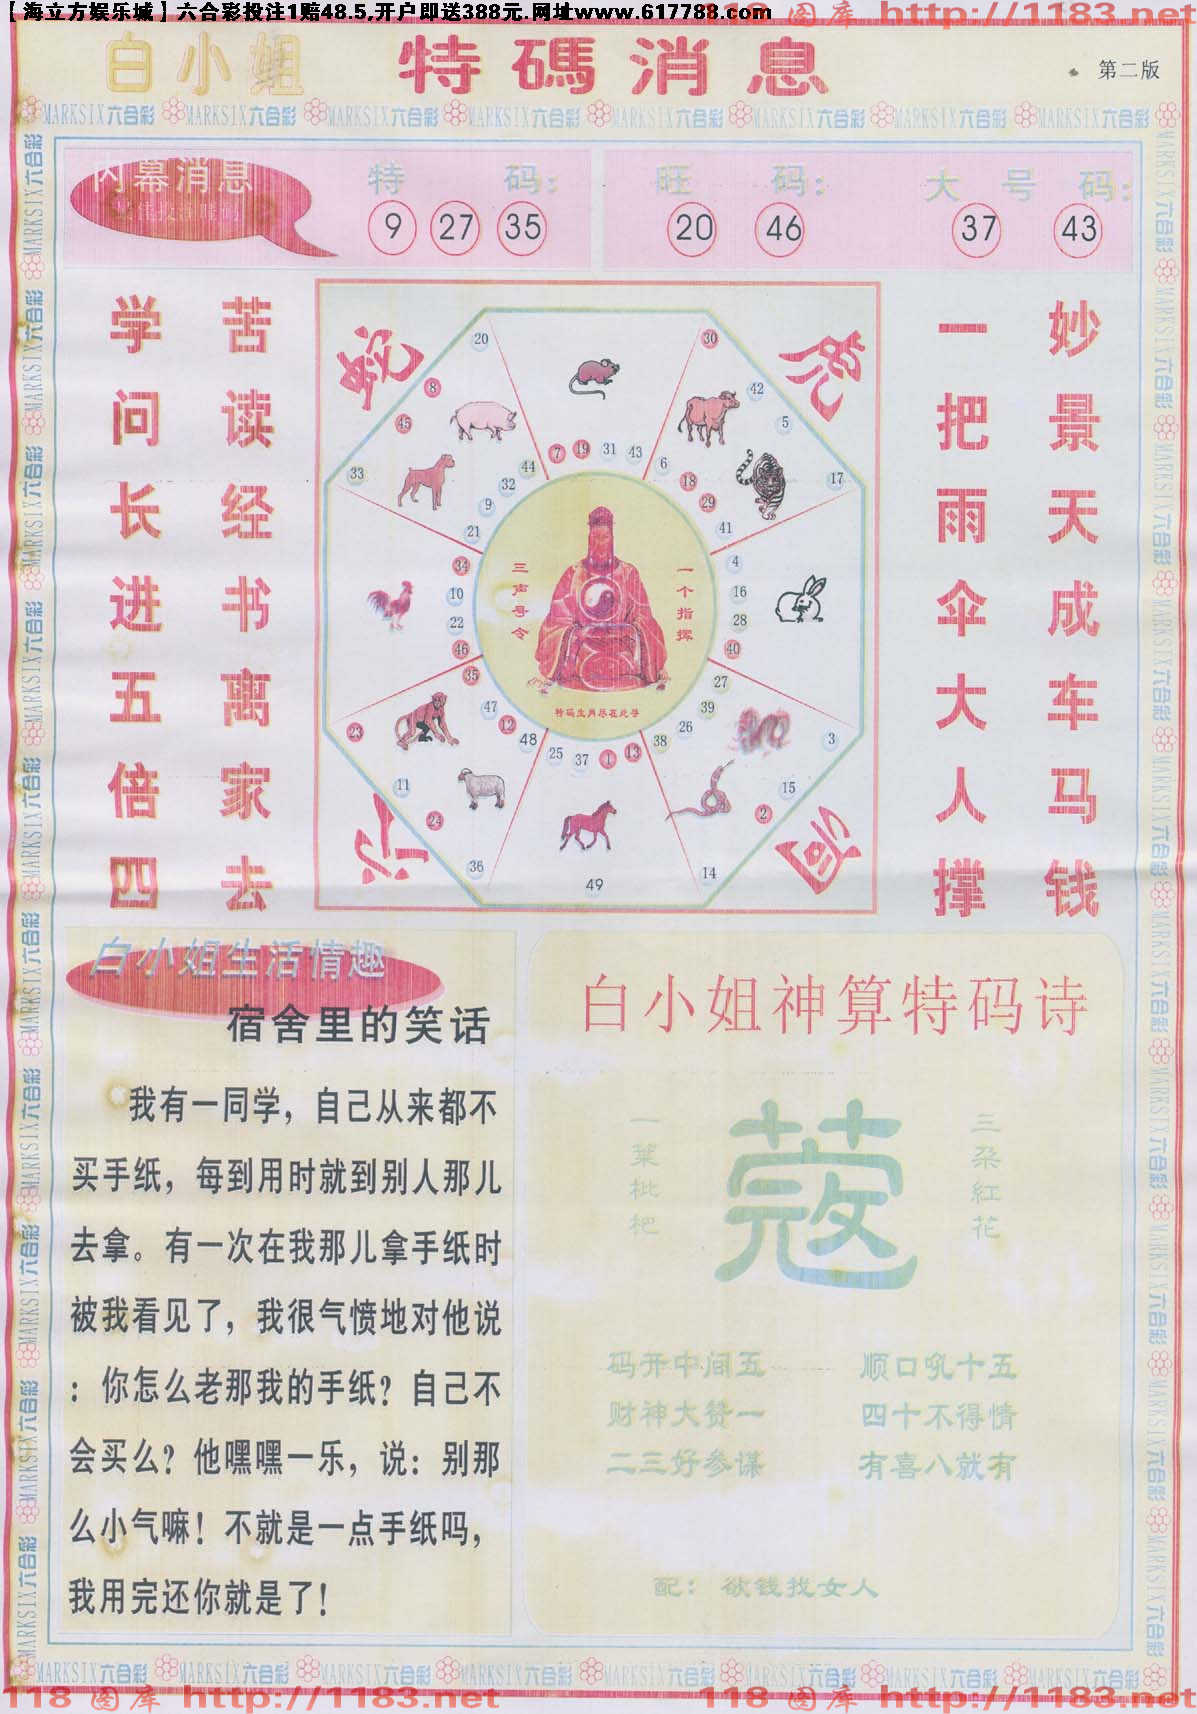 【海立方娱乐城】六合彩投注1赔48.5,开户即送388元.网址www.617788.com
118 图库 http://1183.net
白小姐 特碼消息
第二版
MARKSIX六合彩 MARKSIX六合彩 MARKSIX六合彩 MARKSIX六合彩 MARKSIX六合彩 MARKSIX六合彩 MARKSIX六合彩 MARKSIX六合彩
内幕消息
特 码:
9 27 35
旺 码:
20 46
大 号 码:
37 43
苦读经书离家去
学问长进五倍四
妙景天成车马钱
一把雨伞大人撑
蛇
虎
20
30
8
42
45
5
33
17
44
7 19 31 43
6
32
18
9
29
21
41
34
4
10
16
22
28
46
40
三声号令
一个指挥
特码生肖尽在此寻
35
27
47
39
12
26
48
38
25 37 1 13
23
3
11
15
24
2
36
14
49
白小姐生活情趣
宿舍里的笑话
我有一同学，自己从来都不
买手纸，每到用时就到别人那儿
去拿。有一次在我那儿拿手纸时
被我看见了，我很气愤地对他说
：你怎么老那我的手纸？自己不
会买么？他嘿嘿一乐，说：别那
么小气嘛！不就是一点手纸吗，
我用完还你就是了！
白小姐神算特码诗
一葉枇杷
蔻
三朵紅花
码开中间五 顺口吼十五
财神大赞一 四十不得情
二三好参谋 有喜八就有
配：欲钱找女人
MARKSIX六合彩 MARKSIX六合彩 MARKSIX六合彩 MARKSIX六合彩 MARKSIX六合彩 MARKSIX六合彩 MARKSIX六合彩 MARKSIX六合彩
118 图库 http://1183.net
118 图库 http://1183.net